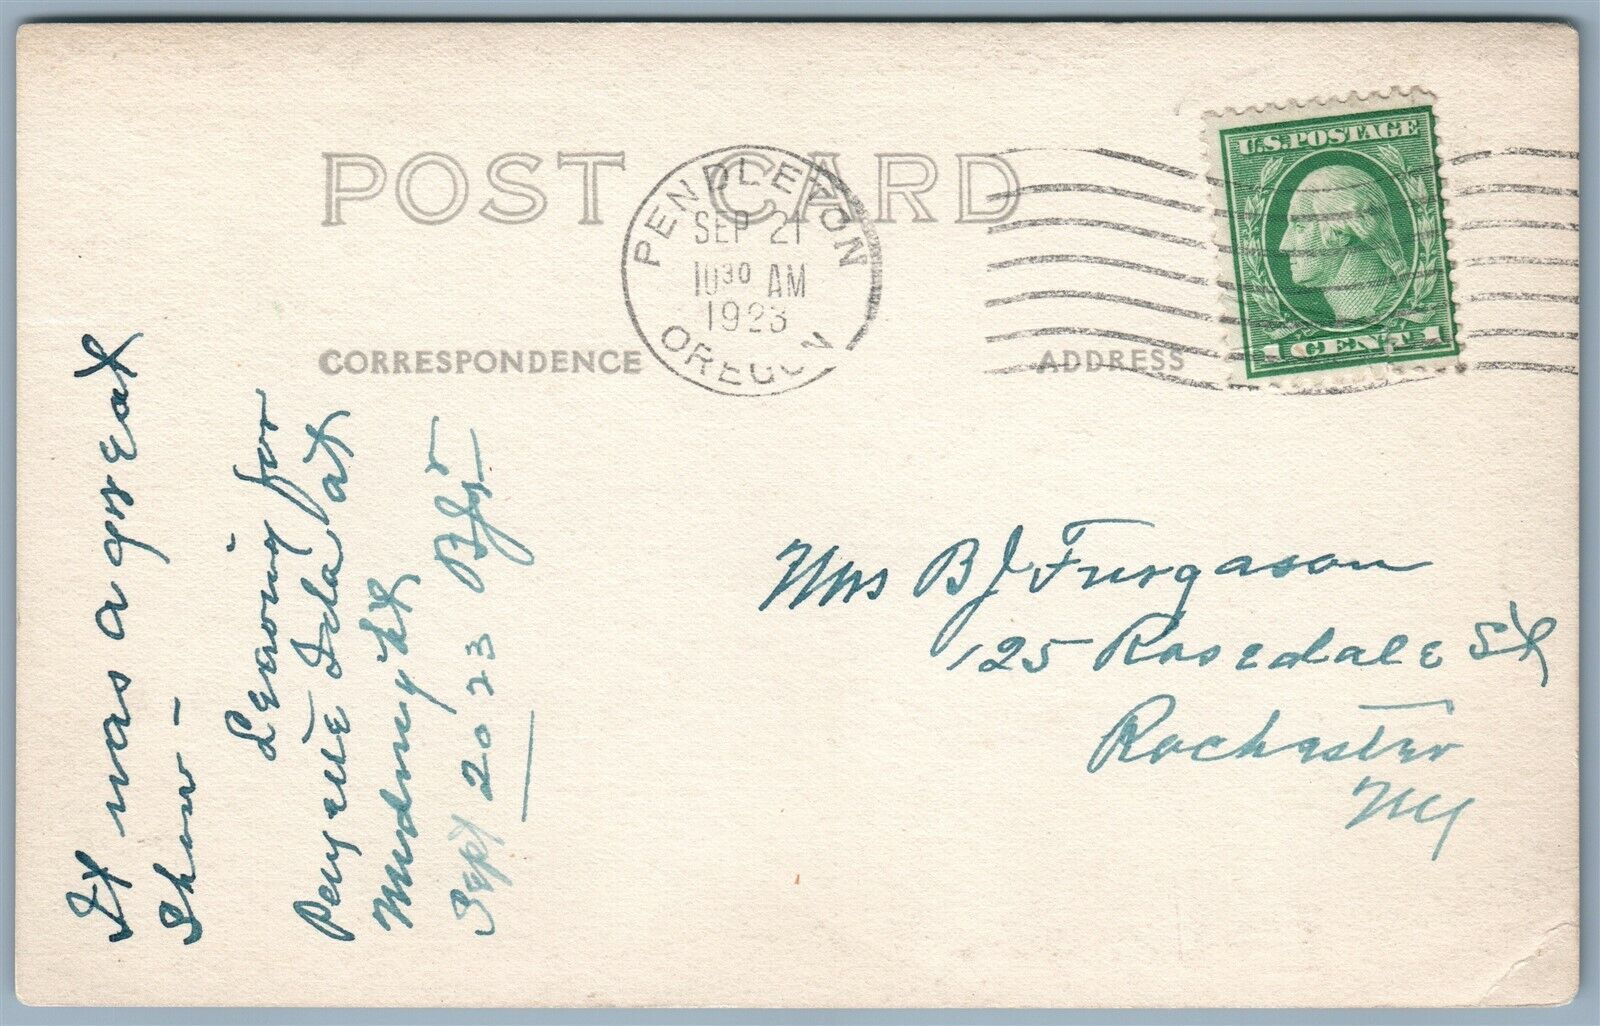 POST CARD
PENDLETON
SEP 21
10 30 AM
1923
OREGON
U.S. POSTAGE
1 CENT 1
CORRESPONDENCE
ADDRESS
It was a great
Show -
Leaving for
Ida at
Midnight
Sept 20 23
Mrs B J Furgason
125 Rosedale St
Rochester
NY